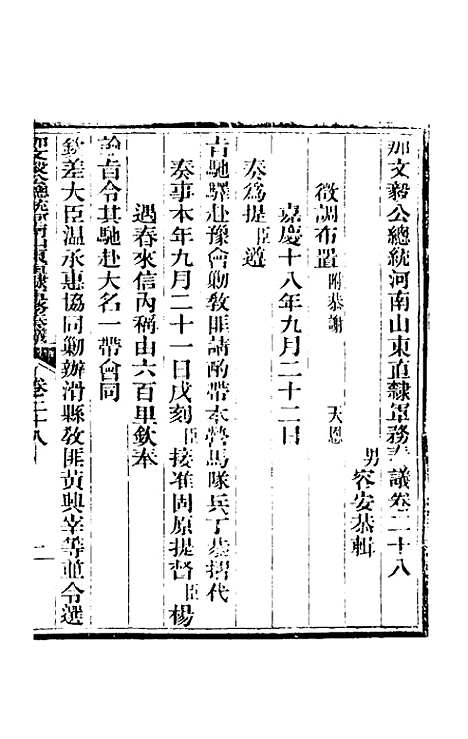 那文毅公總統河南山東直隸軍務奏議卷二十八
男容安恭輯
徵調布置 附恭謝 天恩
嘉慶十八年九月二十二日
奏爲提臣遵
旨馳驛赴豫會勦敎匪請酌帶本營馬隊兵丁恭摺代
奏事本年九月二十一日戌刻臣接准固原提督臣楊
遇春來信內稱由六百里欽奉
諭旨令其馳赴大名一帶會同
欽差大臣温承惠協同勦辦滑縣敎匪黃興宰等並令選
那文毅公總統河南山東直隸軍務奏議 卷二十八 一